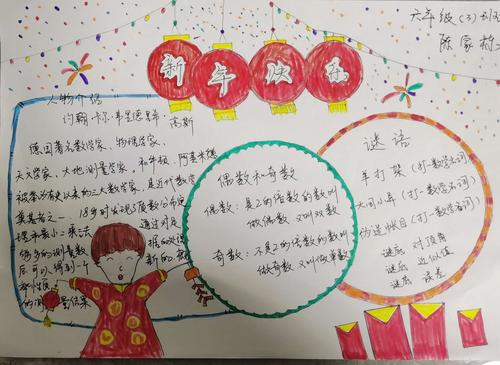 六年级(3)班
陈家
新年快乐
人物介绍
约翰·卡尔·弗里德里希 高斯
德国著名数学家、物理学家、
天文学家、大地测量学家。和牛顿、阿基米德
被奉为有史以来的三大数学家。是近代数学
奠基者之一 18岁时发现了质数分布定
理和最小二乘法 通过对足
够多的测量数 据的处理
后可以得到一个 新的
概率性质
的测量结果
偶数和奇数
偶数:是2的倍数的数叫
做偶数 又叫双数
奇数:不是2的倍数的数叫
做奇数 又叫做单数
谜语
羊打架(打一数学名词)
大同小异(打一数学名词)
伪造帐目(打一数学名词)
谜底 对顶角
谜底 近似值
谜底 误差